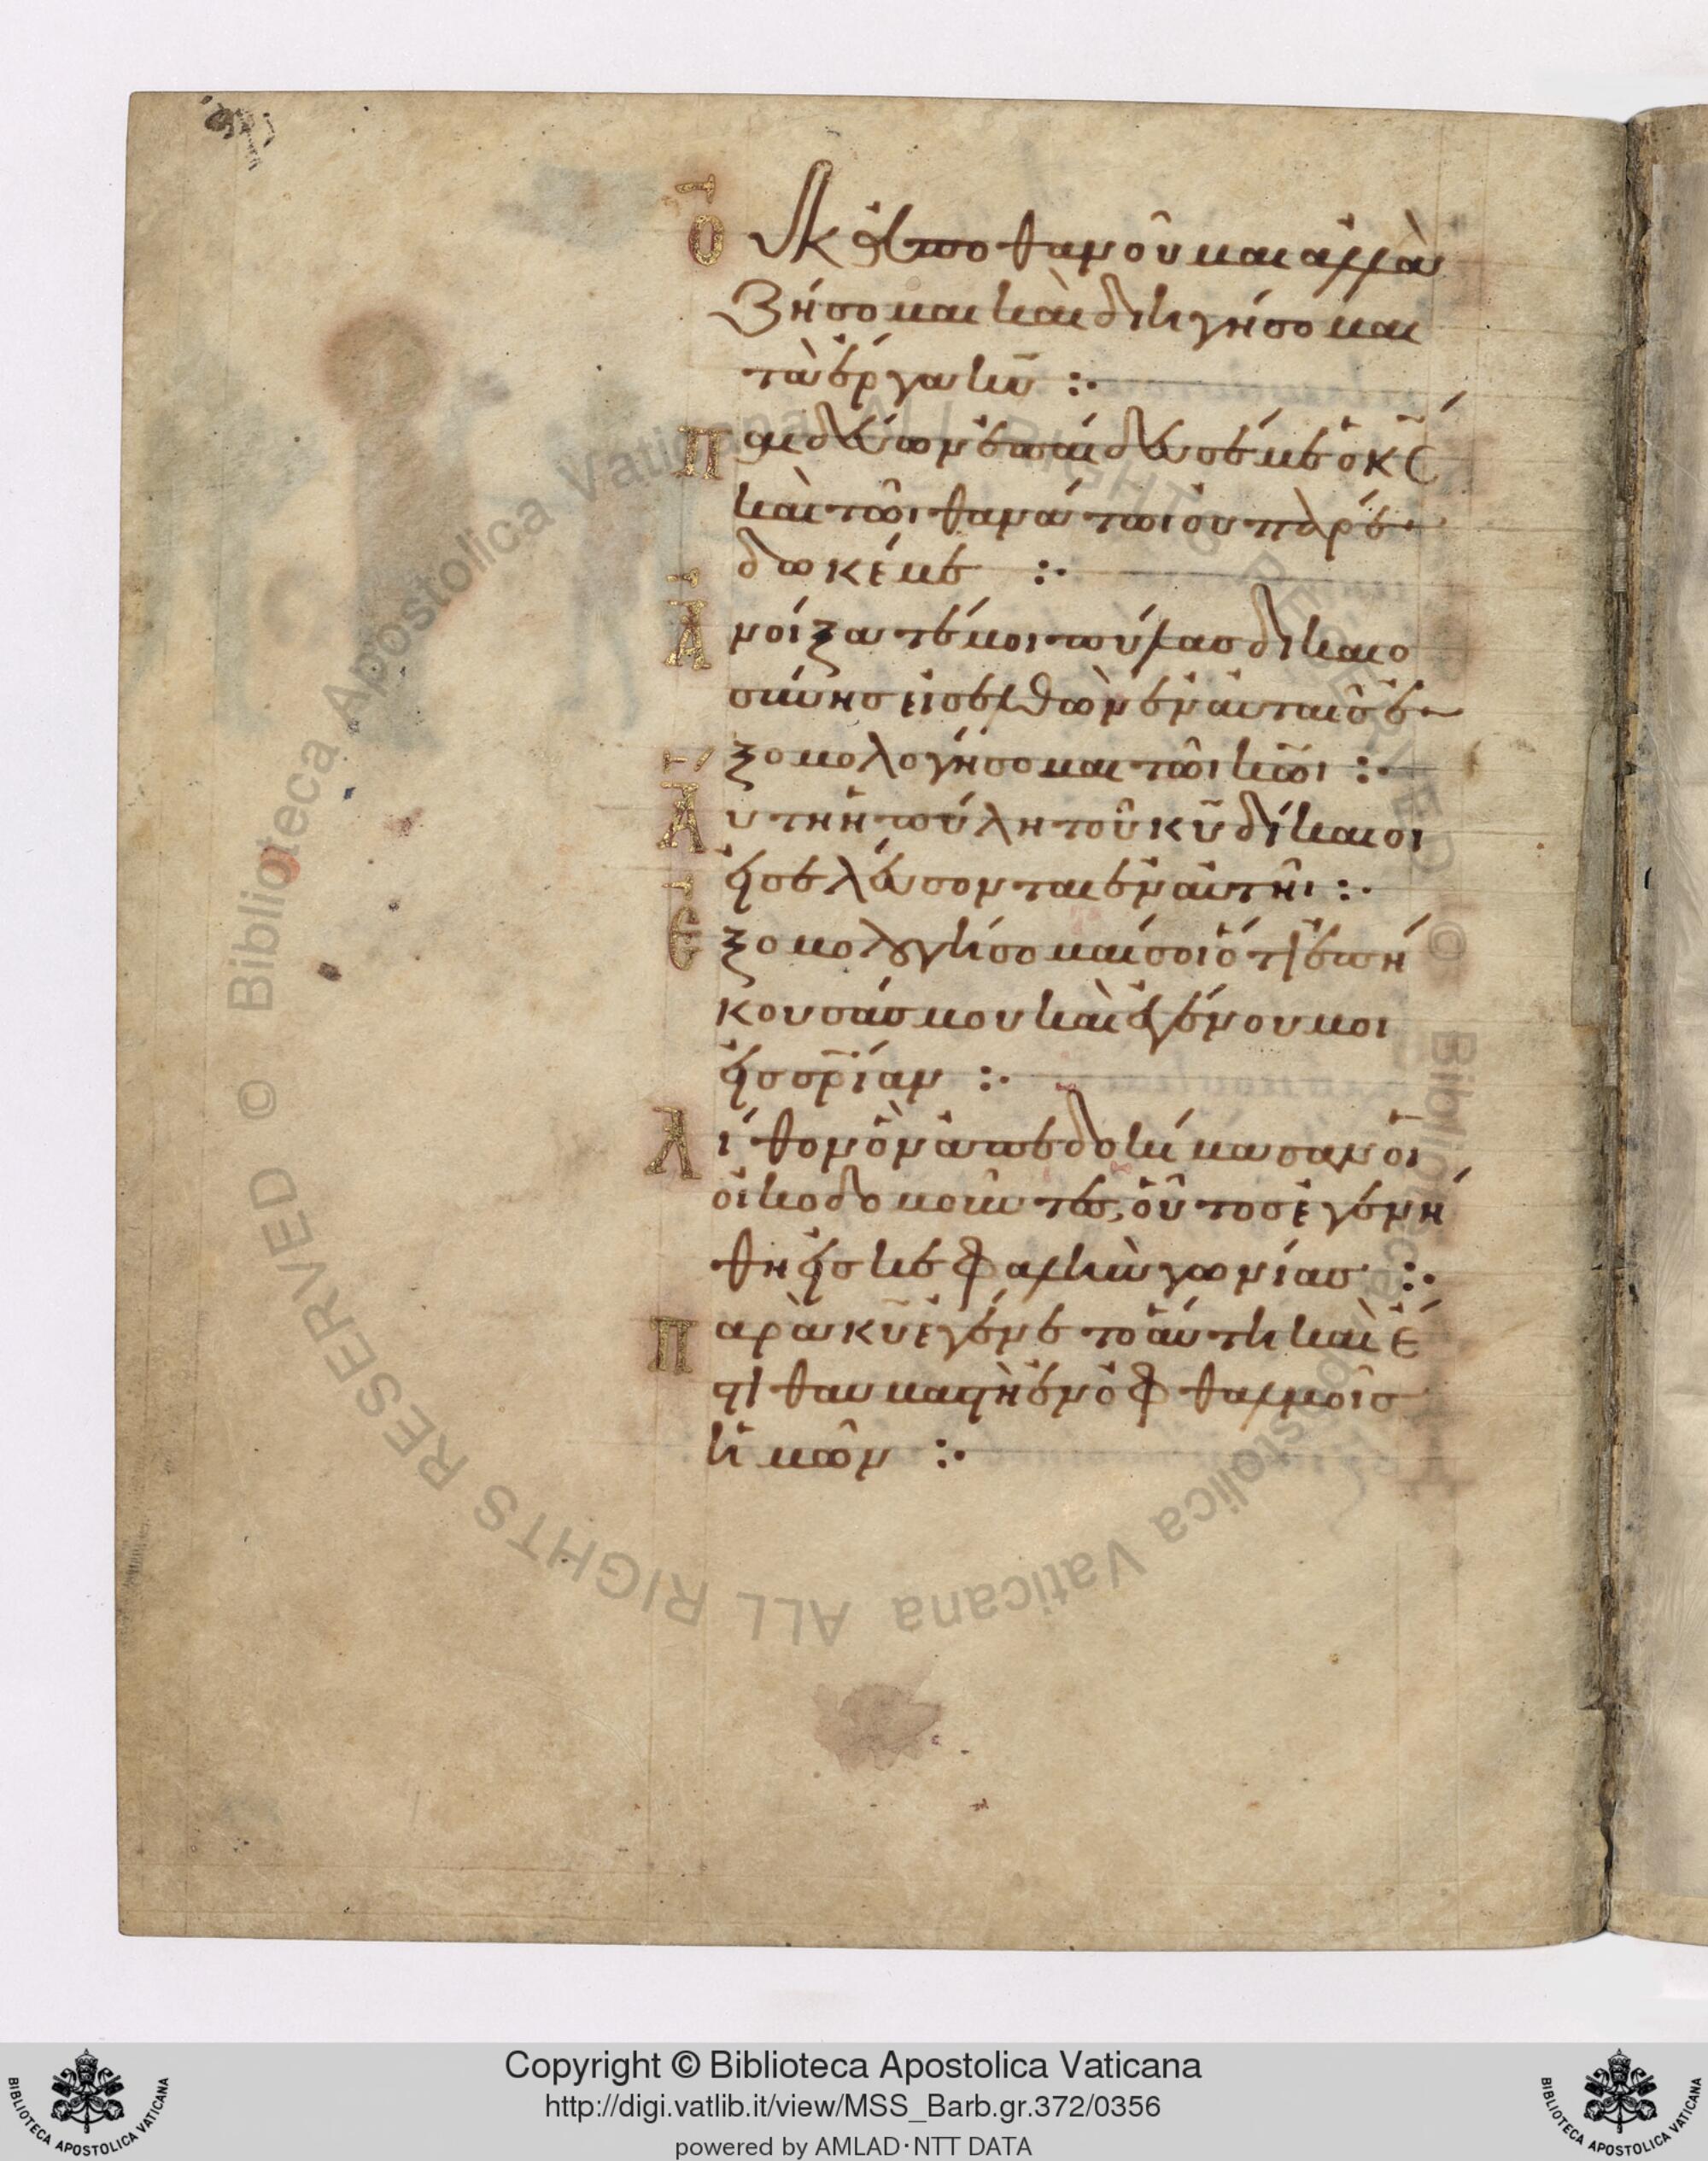 Οὐκ ἀποθανοῦμαι ἀλλὰ
ζήσομαι καὶ διηγήσομαι
τὰ ἔργα κ̅υ̅ :·
Παιδεύων ἐπαίδευσέ με ὁ κ̅ς̅
καὶ τῶι θανάτωι οὐ παρέ
δωκέ με :·
Ἀνοίξατέ μοι πύλας δικαιο
σύνης εἰσελθὼν ἐν αὐταῖς ἐ
ξομολογήσομαι τῶι κ̅ω̅ι :·
Αὕτη ἡ πύλη τοῦ κ̅υ̅ δίκαιοι
εἰσελεύσονται ἐν αὐτῆι :·
Ἐξομολογήσομαί σοι ὅτι ἐπή
κουσάς μου καὶ ἐγένου μοι
εἰς σ̅ρ̅ίαν :·
Λίθον ὃν ἀπεδοκίμασαν οἱ
οἰκοδομοῦντες, οὗτος ἐγενή
θη εἰς κεφαλὴν γωνίας :·
Παρὰ κ̅υ̅ ἐγένετο αὕτη καὶ ἔ
στι θαυμαστὴ ἐν ὀφθαλμοῖς
ἡμῶν :·
© Biblioteca Apostolica Vaticana ALL RIGHTS RESERVED © Biblioteca Apostolica Vaticana ALL RIGHTS RESERVED
Copyright © Biblioteca Apostolica Vaticana
http://digi.vatlib.it/view/MSS_Barb.gr.372/0356
powered by AMLAD·NTT DATA
BIBLIOTECA APOSTOLICA VATICANA
BIBLIOTECA APOSTOLICA VATICANA